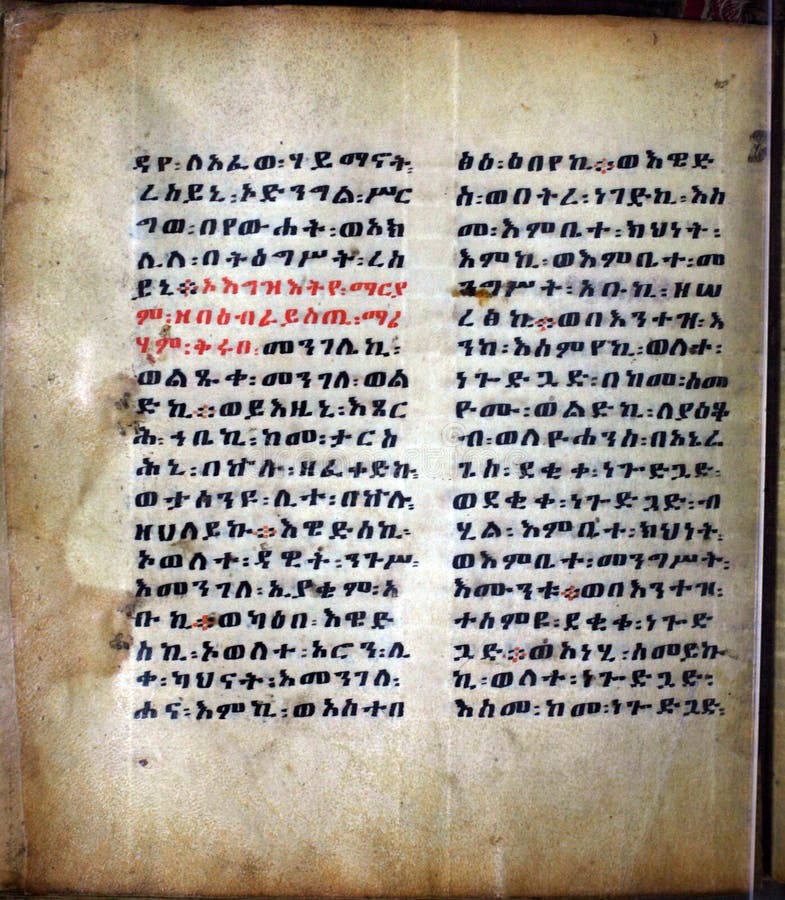 ዳየ፡ለአፈወ፡ሃይማኖት
ረሰይኒ፡ኦድንግል፡ሥር
ግወ፡በየውሐት፡ወአክ
ሊለ፡በትዕግሥት፡ረሰ
ይኒ፨ኦእግዝእትየ፡ማርያ
ም፡ዘበዕብራይስጢ፡ማሪ
ሃም፡ቅሩበ፡መንገሌኪ፡
ወልጹቀ፡መንገለ፡ወል
ድኪ፨ወይእዜኒ፡እጼር
ሕ፡ኀቤኪ፡ከመ፡ታርስ
ሕኒ፡በኵሉ፡ዘፈቀድኩ
ወታሰንዩ፡ሊተ፡በኵሉ
ዘሀለይኩ፨እዌድሰኪ፡
ኦወለተ፡ዳዊት፡ንጉሥ፡
እመንገለ፡ኢያቄም፡አ
ቡኪ፨ወካዕበ፡እዌድ
ሰኪ፡ኦወለተ፡አሮን፡ሊ
ቀ፡ካህናት፡እመንገለ፡
ሐና፡እምኪ፡ወአስተበ
ፅዕ፡ዕበየኪ፨ወእዌድ
ስ፡ወበትረ፡ነገድኪ፡እስ
መ፡እምቤተ፡ክህነት፡
እምኪ፡ወእምቤተ፡መ
ንግሥት፡አቡኪ፡ዘሠ
ረፀኪ፨ወበእንተዝ፡አ
ንከ፡እሰምየኪ፡ወለተ፡
ነጐድጓድ፡በከመ፡ሰመ
ዮሙ፡ወልድኪ፡ለያዕቆ
ብ፡ወለዮሐንስ፡በአኒረ
ጌስ፡ደቂቀ፡ነጐድጓድ፡
ወደቂቀ፡ነጐድጓድ፡ብ
ሂል፡እምቤተ፡ክህነት
ወእምቤተ፡መንግሥት፡
እሙንቱ፨ወበእንተዝ፡
ተሰምዩ፡ደቂቀ፡ነጐድ
ጓድ፨ወአነሂ፡ሰመይኩ
ኪ፡ወለተ፡ነጐድጓድ፡
እስመ፡ከመ፡ነጐድጓድ፡